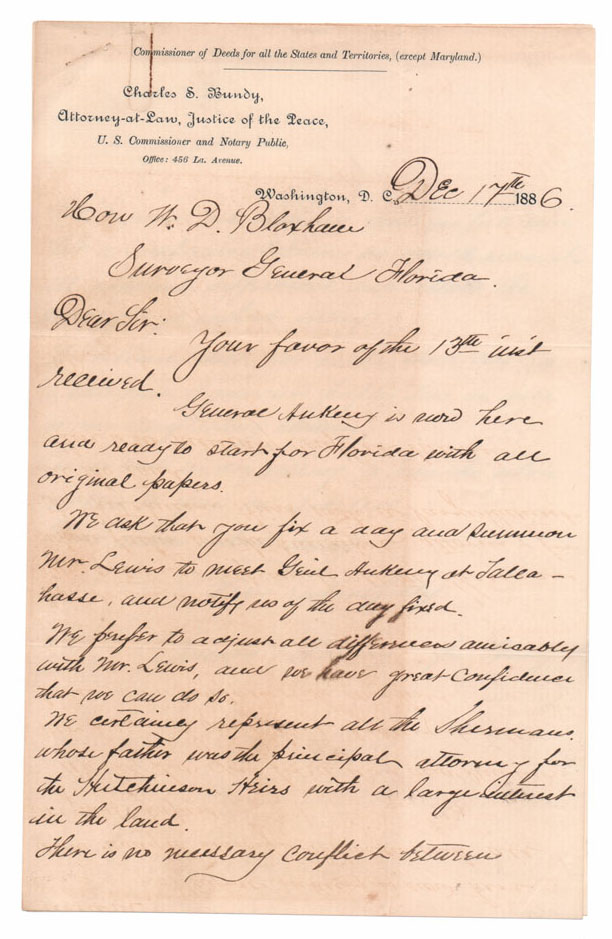 Commissioner of Deeds for all the States and Territories, (except Maryland.)
Charles S. Bundy,
Attorney-at-Law, Justice of the Peace,
U. S. Commissioner and Notary Public,
Office: 456 La. Avenue.
Washington, D. C., Dec 17th 1886.
Hon W. D. Bloxham
Surveyor General Florida.
Dear Sir:
Your favor of the 13th inst
received.
General Ankeny is now here
and ready to start for Florida with all
original papers.
We ask that you fix a day and summon
Mr. Lewis to meet Genl Ankeny at Talla-
hasse, and notify us of the day fixed.
We prefer to adjust all differences amicably
with Mr. Lewis, and we have great confidence
that we can do so.
We certainly represent all the Shermans.
whose father was the principal attorney for
the Hutchinson Heirs with a large interest
in the land.
There is no necessary conflict between